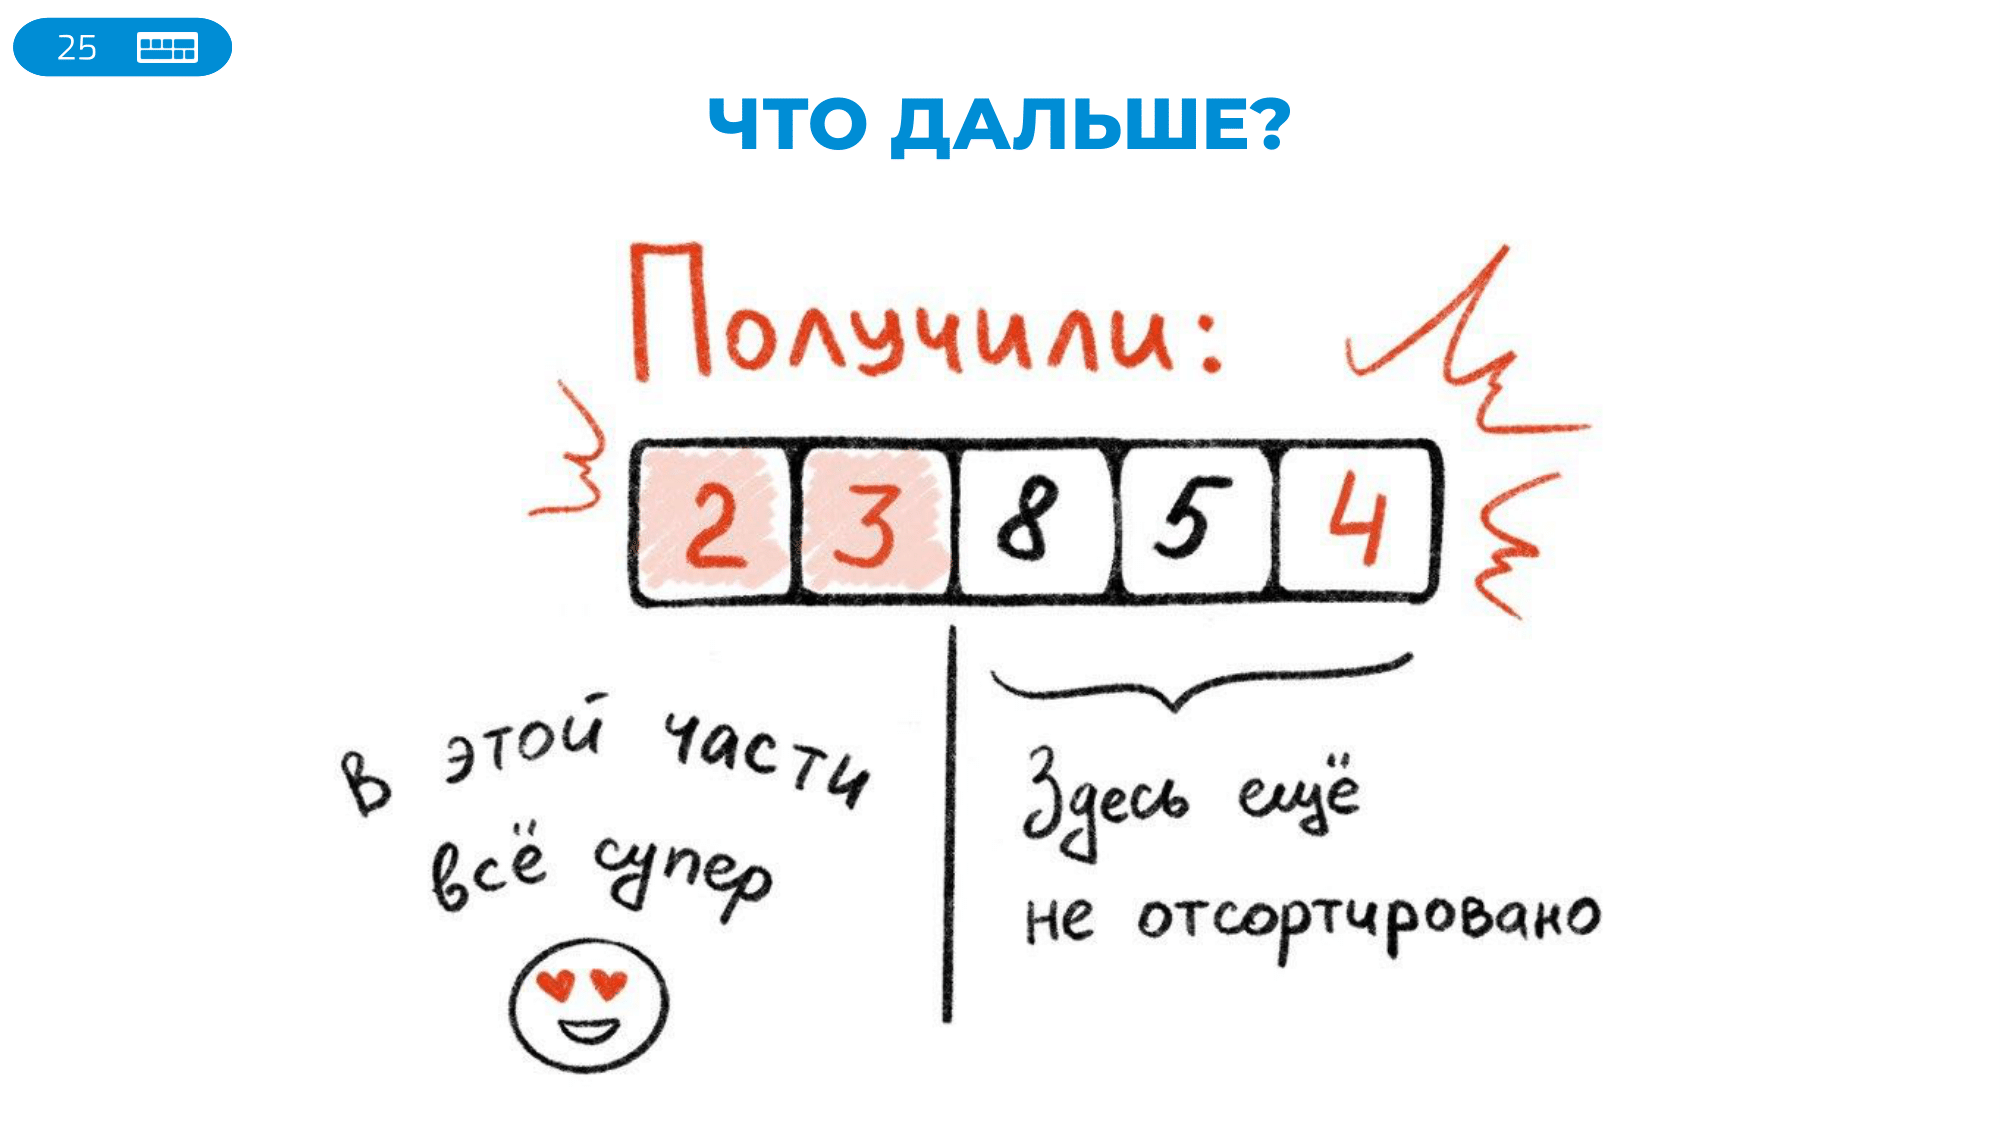 25
ЧТО ДАЛЬШЕ?
Получили:
2 3 8 5 4
В этой части
всё супер
Здесь ещё
не отсортировано